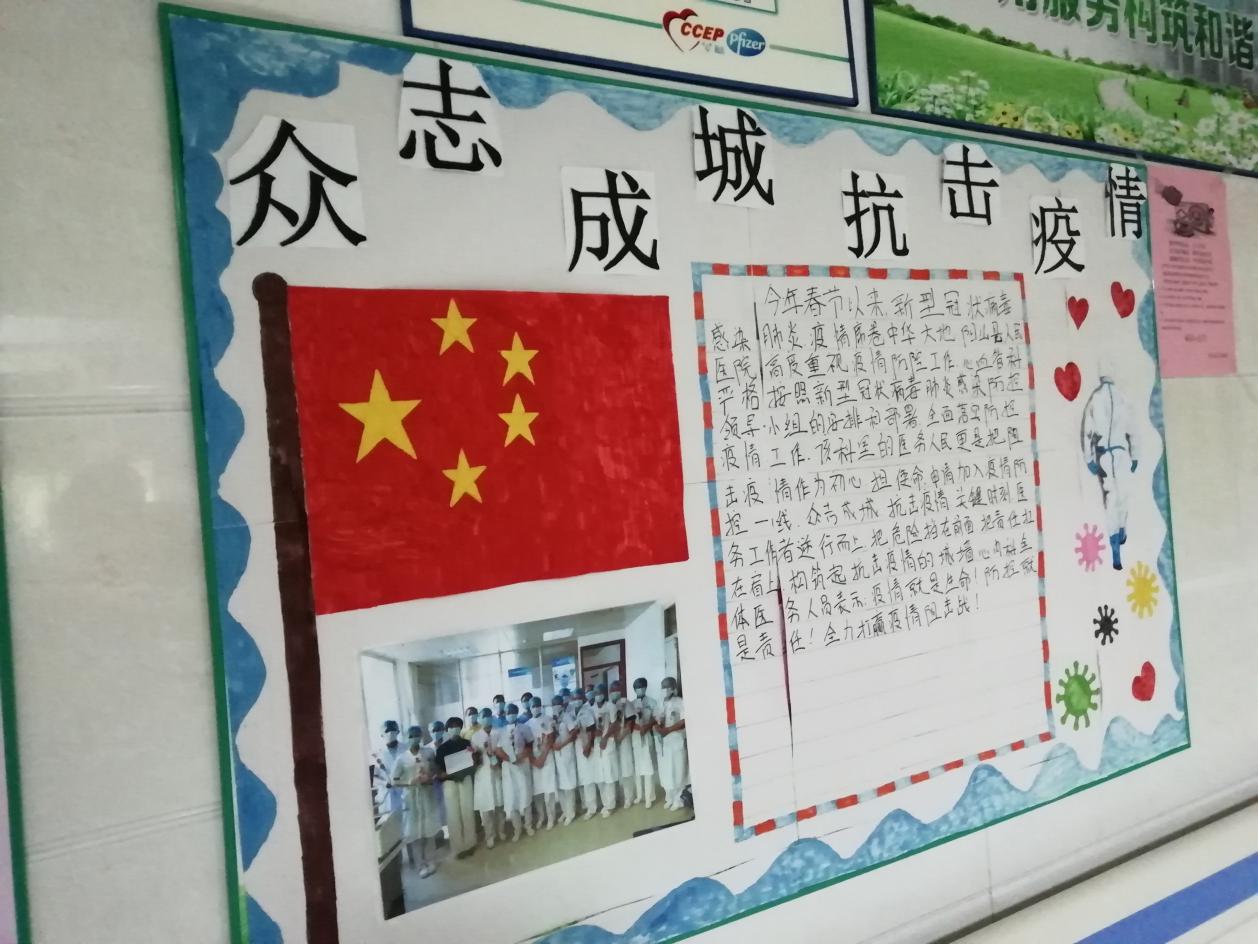 CCEP
Pfizer
服务构筑和谐
众志成城抗击疫情
今年春节以来,新型冠状病毒
感染肺炎疫情席卷中华大地,阳山县人民
医院高度重视疫情防控工作,心血管科
严格按照新型冠状病毒肺炎感染防控
领导小组的安排和部署,全面落实防控
疫情工作,该科室的医务人民更是把阻
击疫情作为初心,担使命,申请加入疫情防
控一线,众志成城,抗击疫情,关键时刻,医
务工作者逆行而上,把危险挡在前面,把责任扛
在肩上,构筑起抗击疫情的城墙,心内科全
体医务人员表示:疫情就是生命!防控就
是责任!全力打赢疫情阻击战!